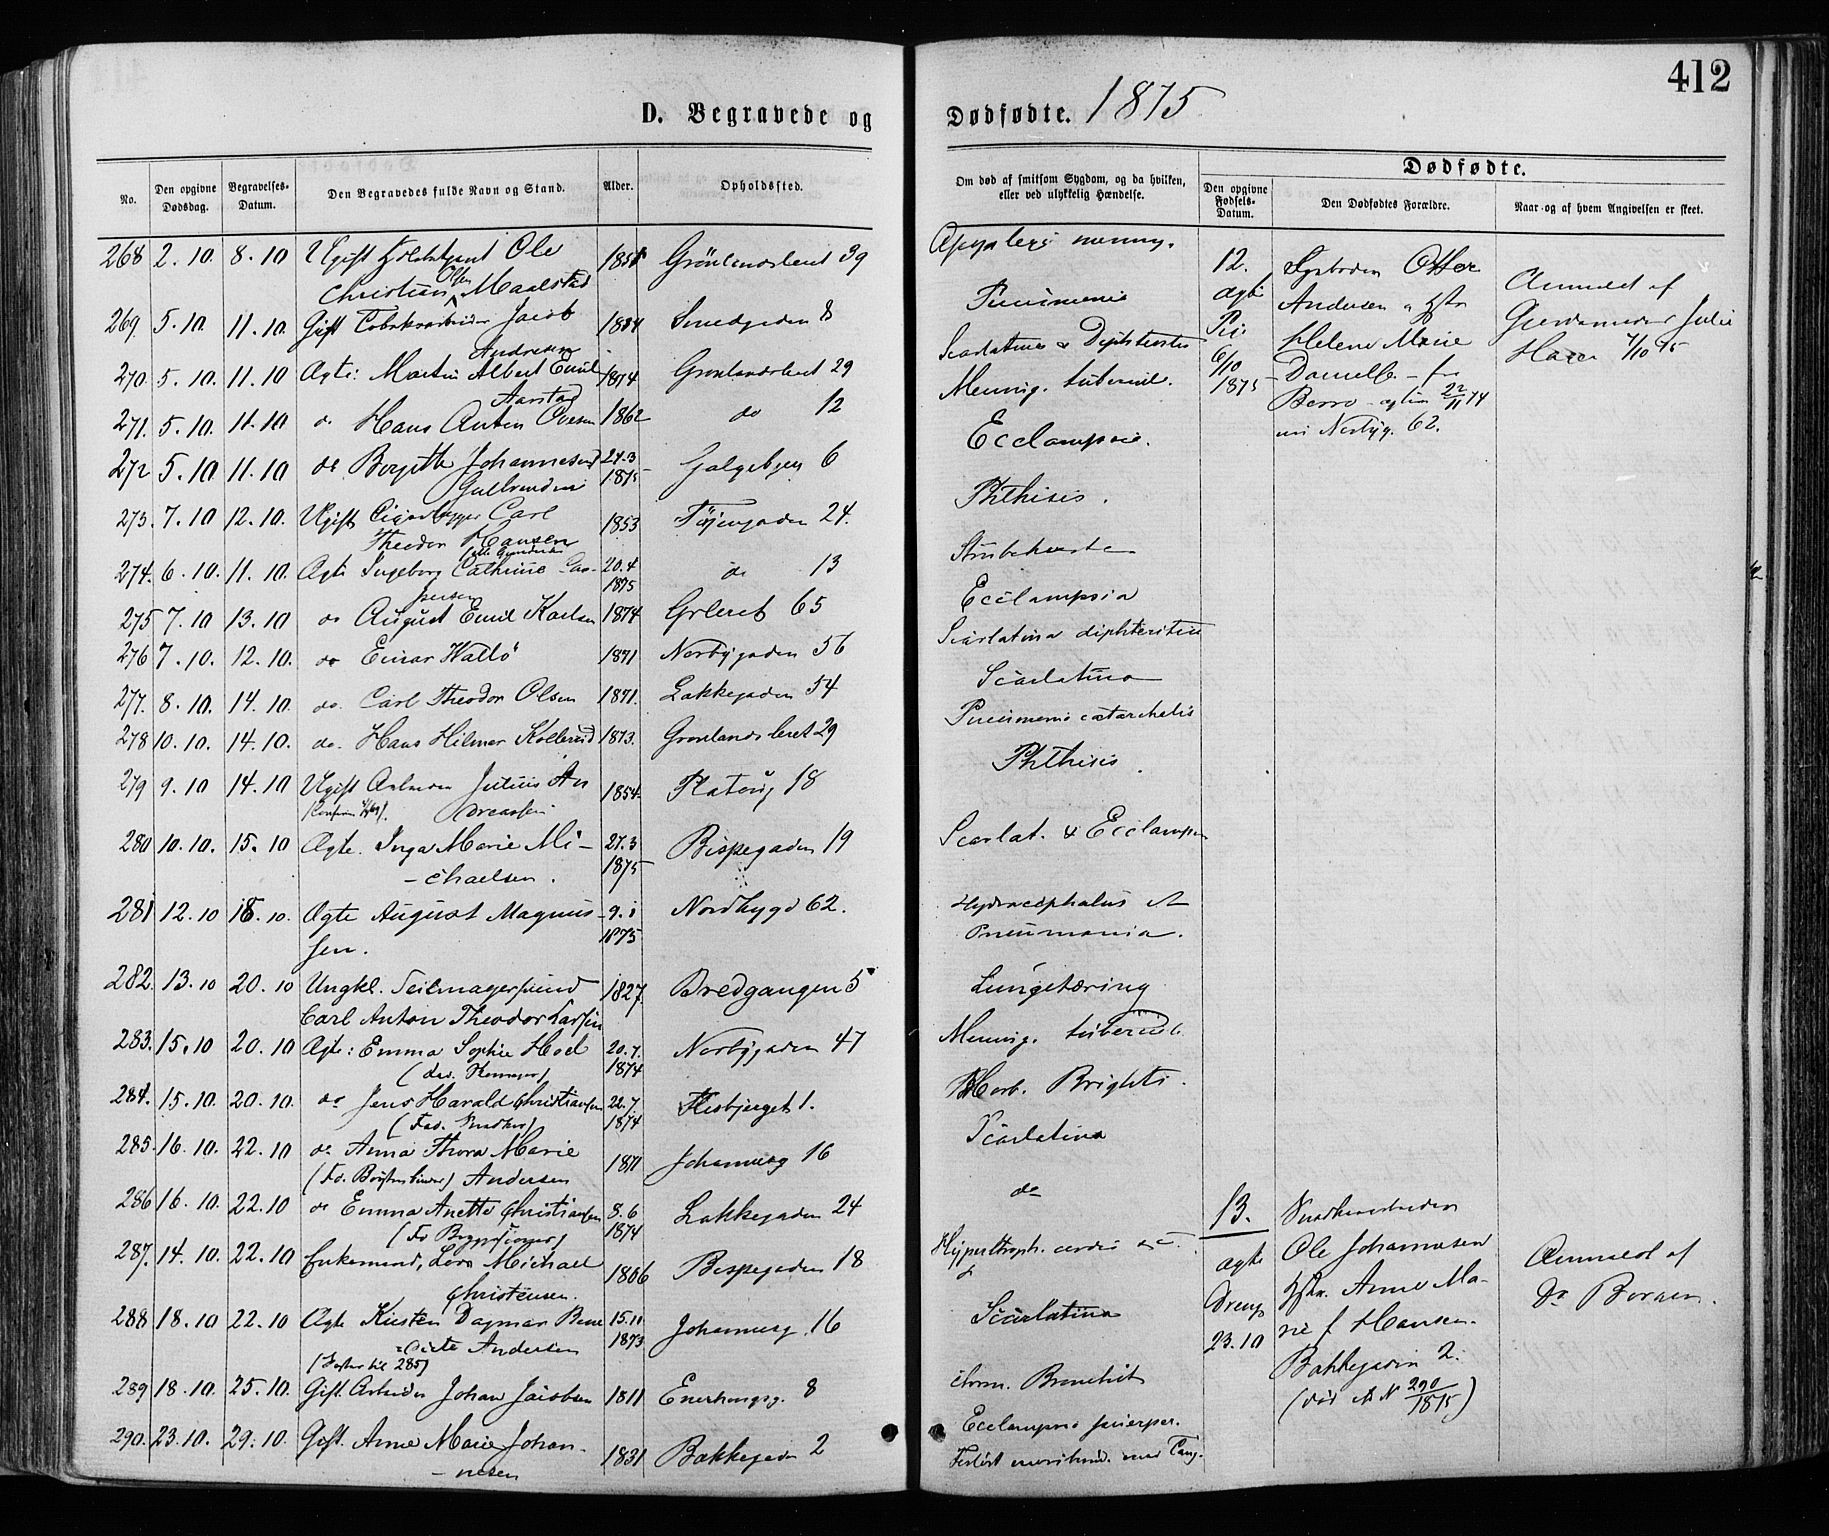 412
D. Begravede og Dødfødte. 1875
No.
Den opgivne Dødsdag.
Begravelses-Datum.
Den Begravedes fulde Navn og Stand.
Alder.
Opholdssted.
Om død af smitsom Sygdom, og da hvilken, eller ved ulykkelig Hændelse.
Dødfødte.
Den opgivne Fødsels-Datum.
Den Dødfødtes Forældre.
Naar og af hvem Angivelsen er skeet.
268 2.10 8.10 Ugift Ole Grönlandsleret 39
Christian Olsen Maalstad
269. 5.10. 11.10. Gift Jacob Smedgaden 8 Pneumonie
Andresen
270. 5.10. 11.10 Ægte: Martin Albert Emil 1874 Grønlandsleret 29 Scarlatina & Diphteritis
Aarstad
271. 5.10. 11.10 do Hans Anton Ovesen 1862 do 12 Mening. tubercul.
272 5.10 11.10 do Birgitte Johannesen 24.3 1875 Galgebyen 6 Ecclampsie.
Gulbrandsen
273. 7.10 12.10. Ugift Carl 1853 Töiengaden 24. Phthisis.
Theodor Hansen
274. 6.10. 11.10. Ægte Ingeborg Cathrine Cas- 20.4 1875 do 13 Strubehoste
persen
275 7.10 13.10 do August Emil Karlsen 1874 Grleret 65 Ecclampsia
276 7.10. 12.10. do Einar Wallö 1871 Norbygaden 56 Scarlatina diphteritica
277. 8.10. 14.10. do. Carl Theodor Olsen 1871. Lakkegaden 54 Scarlatina
278 10.10. 14.10. do. Hans Hilmar Kollerud 1873. Grønlandsleret 29 Pneumonie catarrhalis
279 9.10 14.10 Ugift Julius An 1854. Platoug 18 Phthisis.
dreassen
280 10.10. 15.10 Ægte. Inga Marie Mi- 27.3 1875 Bispegaden 19 Scarlat. & Ecclampsia
-chaelsen.
281 12.10 18.10. Ægte August Magnus- 9.1 1875 Nordbygd 62. Hydrocephalus &
sen. Pneumonia.
282. 13.10 20.10 Ungkl. Seilmagersvend 1827. Bredgangen 5 Lungetæring
Carl Anton Theodor Larsen
283. 15.10 20.10 Ægte: Emma Sophie Hoel 20.7. 1874 Norbygaden 47 Mening. tubercul.
284. 15.10. 20.10. do Jens Harald Christiansen 22.7 1874 Flisbjerget 1. Morb. Brighti.
(Fad. Snedker)
285. 16.10. 22.10 do Anna Thora Marie 1871 Johannesg 16 Scarlatina
Andersen
286 16.10. 22.10 do Emma Anette Christiansen 8.6 1874 Lakkegaden 24 do
287. 14.10. 22.10 Enkemand, Lars Michael 1806 Bispegaden 18 Hypertroph. cordis
Christensen.
288 18.10 22.10 Ægte Kirsten Dagmar Bene 15.11 1873 Johannesg. 16 Scarlatina
dicte Andersen
(Søster til 285)
289 18.10. 25.10. Gift. Arbeider Johan Jacobsen 1811 Enerhaugsg. 8 chron. Bronchit
290. 23.10. 29.10. Gift. Anne Marie Johan- 1831 Bakkegaden 2 Ecclampsia puerper.
-nesen
12.
ægte
Pige
6/10
1875
Andersen
Helene Marie
Danielsen
Norbyg. 62.
Anmeldt af
Gjordemoder Julie
13.
ægte
Dreng
23.10
Snedkersvenden
Ole Johannesen
Hstr. Anne Ma-
rie f Hansen.
Bakkegaden 2.
(død N 290/1875)
Anmeldt af
Dr Børsen.